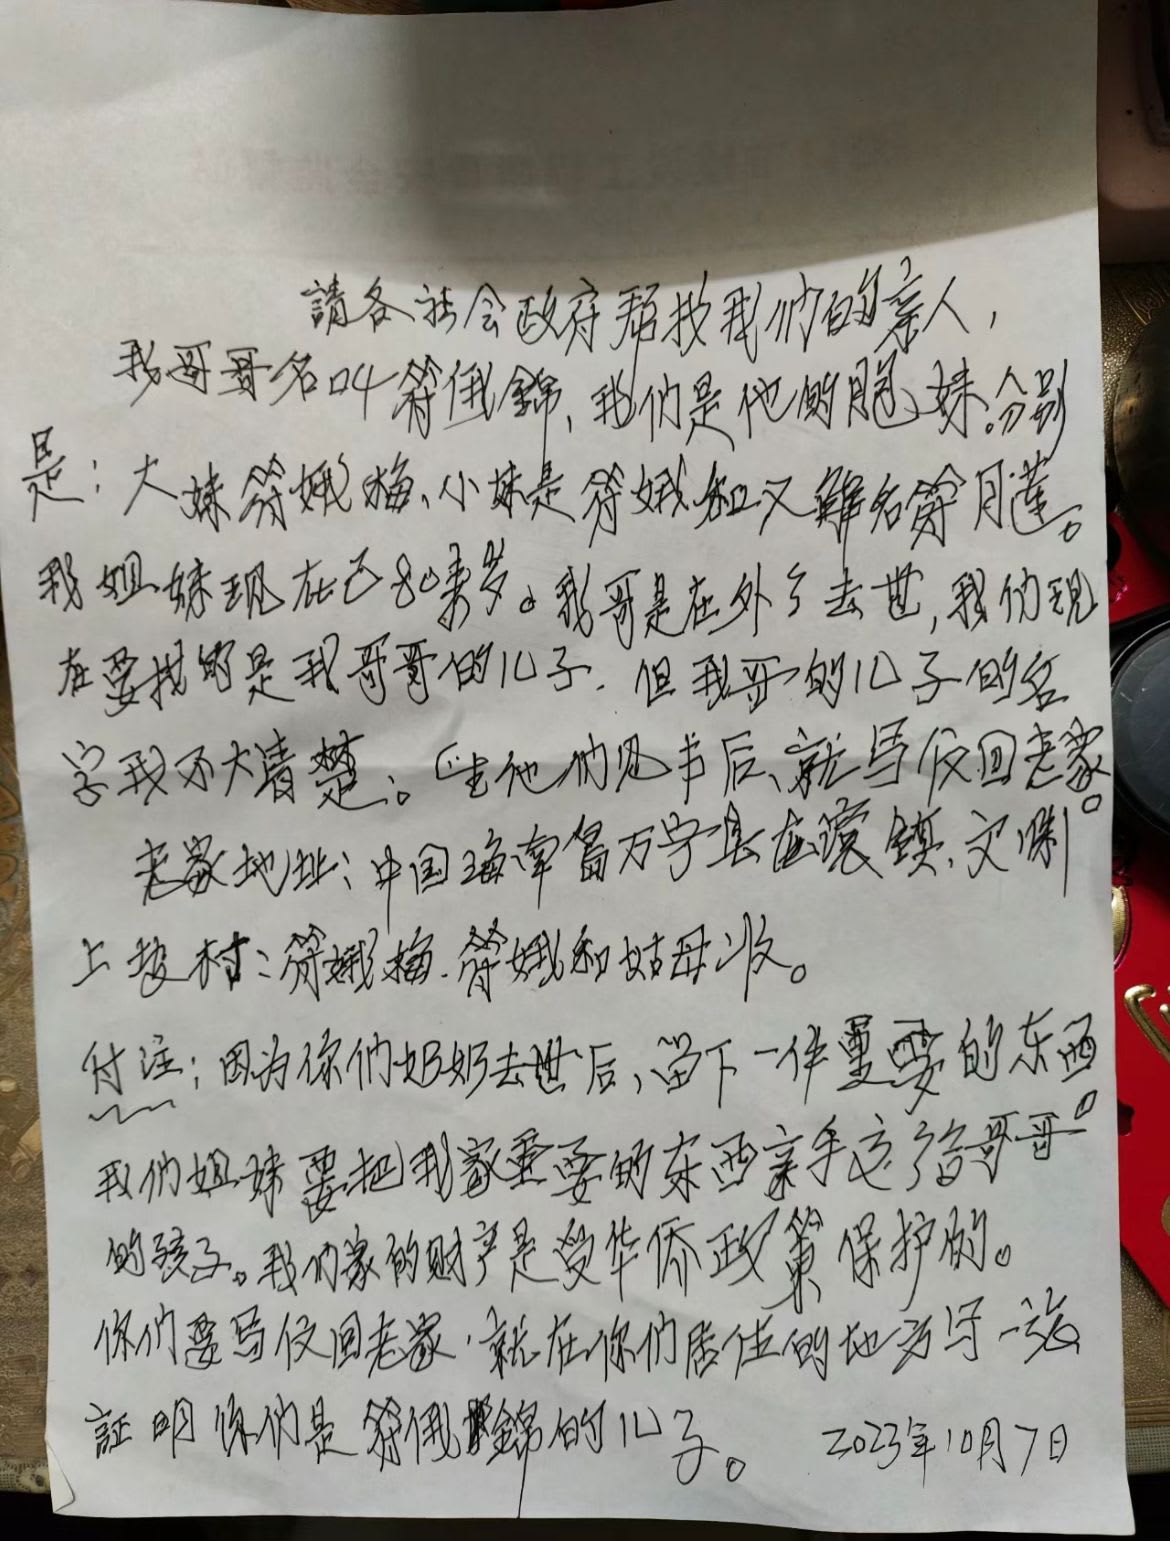 請各社会政府帮找我们的亲人，
我哥哥名叫符俄錦，我们是他的胞妹。分别
是：大妹符娥梅、小妹是符娥和又名符月莲。
我姐妹现在已80来岁。我哥是在外去世，我们现
在要找的是我哥哥的儿子．但我哥的儿子的名
字我不大清楚。他们见书后、就写仅回老家。
老家地址：中国海南省万宁县镇、文
上坡村：符娥梅．符娥和姑母收。
付注：因为你们奶奶去世后，留下一件重要的东西。
我们姐妹要把我家重要的东西亲手交给哥哥
的孩子。我们家的财产是受华侨政策保护的。
你们要写仅回老家，就在你们居住的地方写一
証明你们是符俄錦的儿子。 2023年10月7日